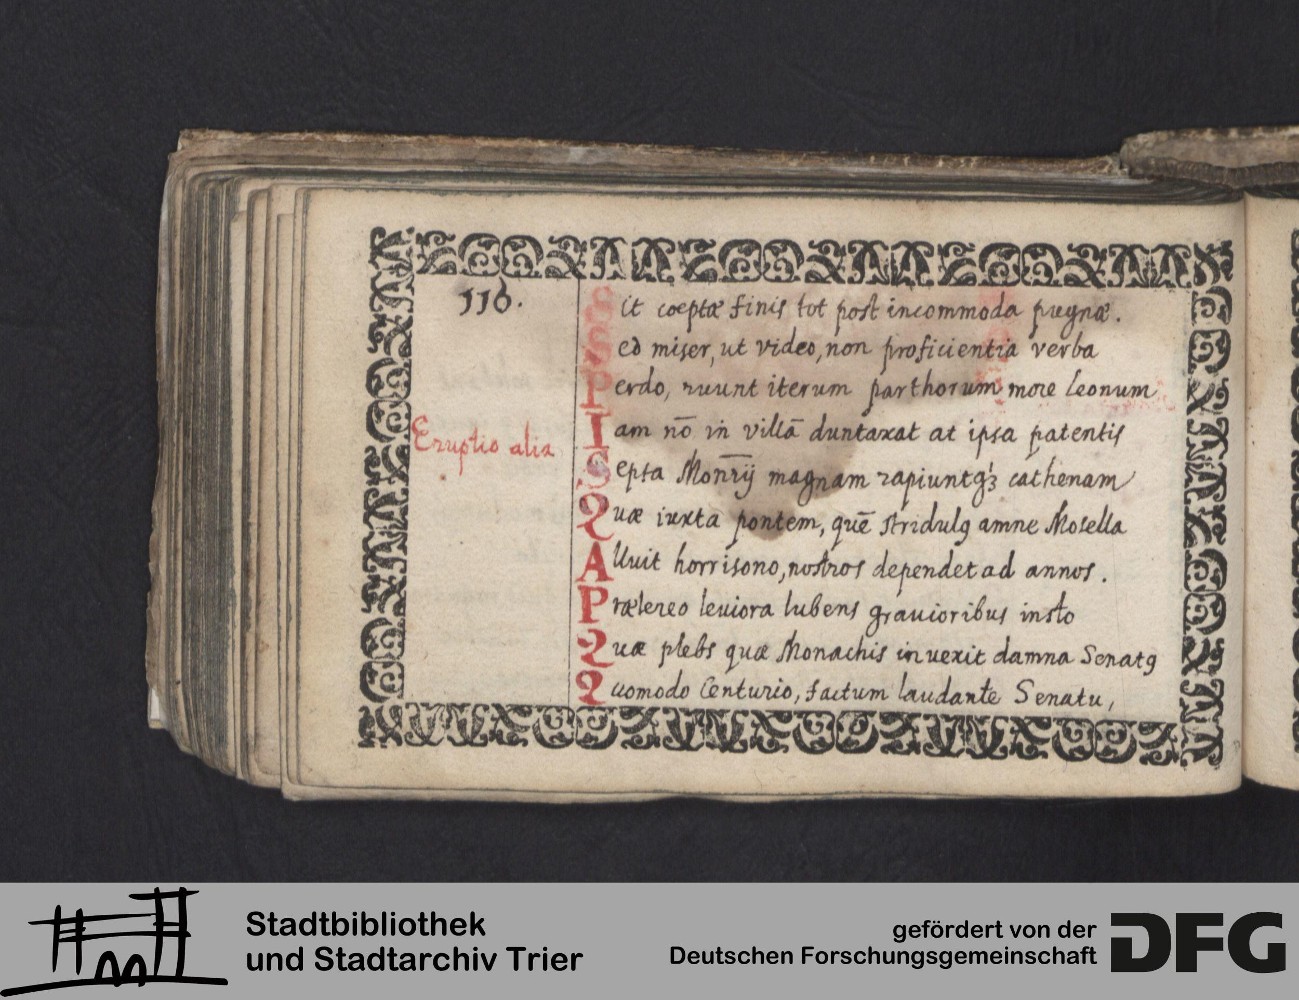 116.
Sit coeptæ finis tot post incommoda pugnæ.
Sed miser, ut video, non proficientia verba
Perdo, ruunt iterum parthorum more leonum
Eruptio alia
Iam nō in villā duntaxat at ipsa patentis
Septa Monrij magnam rapiuntqꝫ cathenam
Quæ iuxta pontem, quē stridulꝰ amne Mosella
Alluit horrisono, nostros dependet ad annos.
Prætereo leviora lubens gravioribus insto
Quæ plebs quæ Monachis invexit damna Senatꝰ
Quomodo Centurio, factum laudante Senatu,
Stadtbibliothek
und Stadtarchiv Trier
gefördert von der
Deutschen Forschungsgemeinschaft
DFG